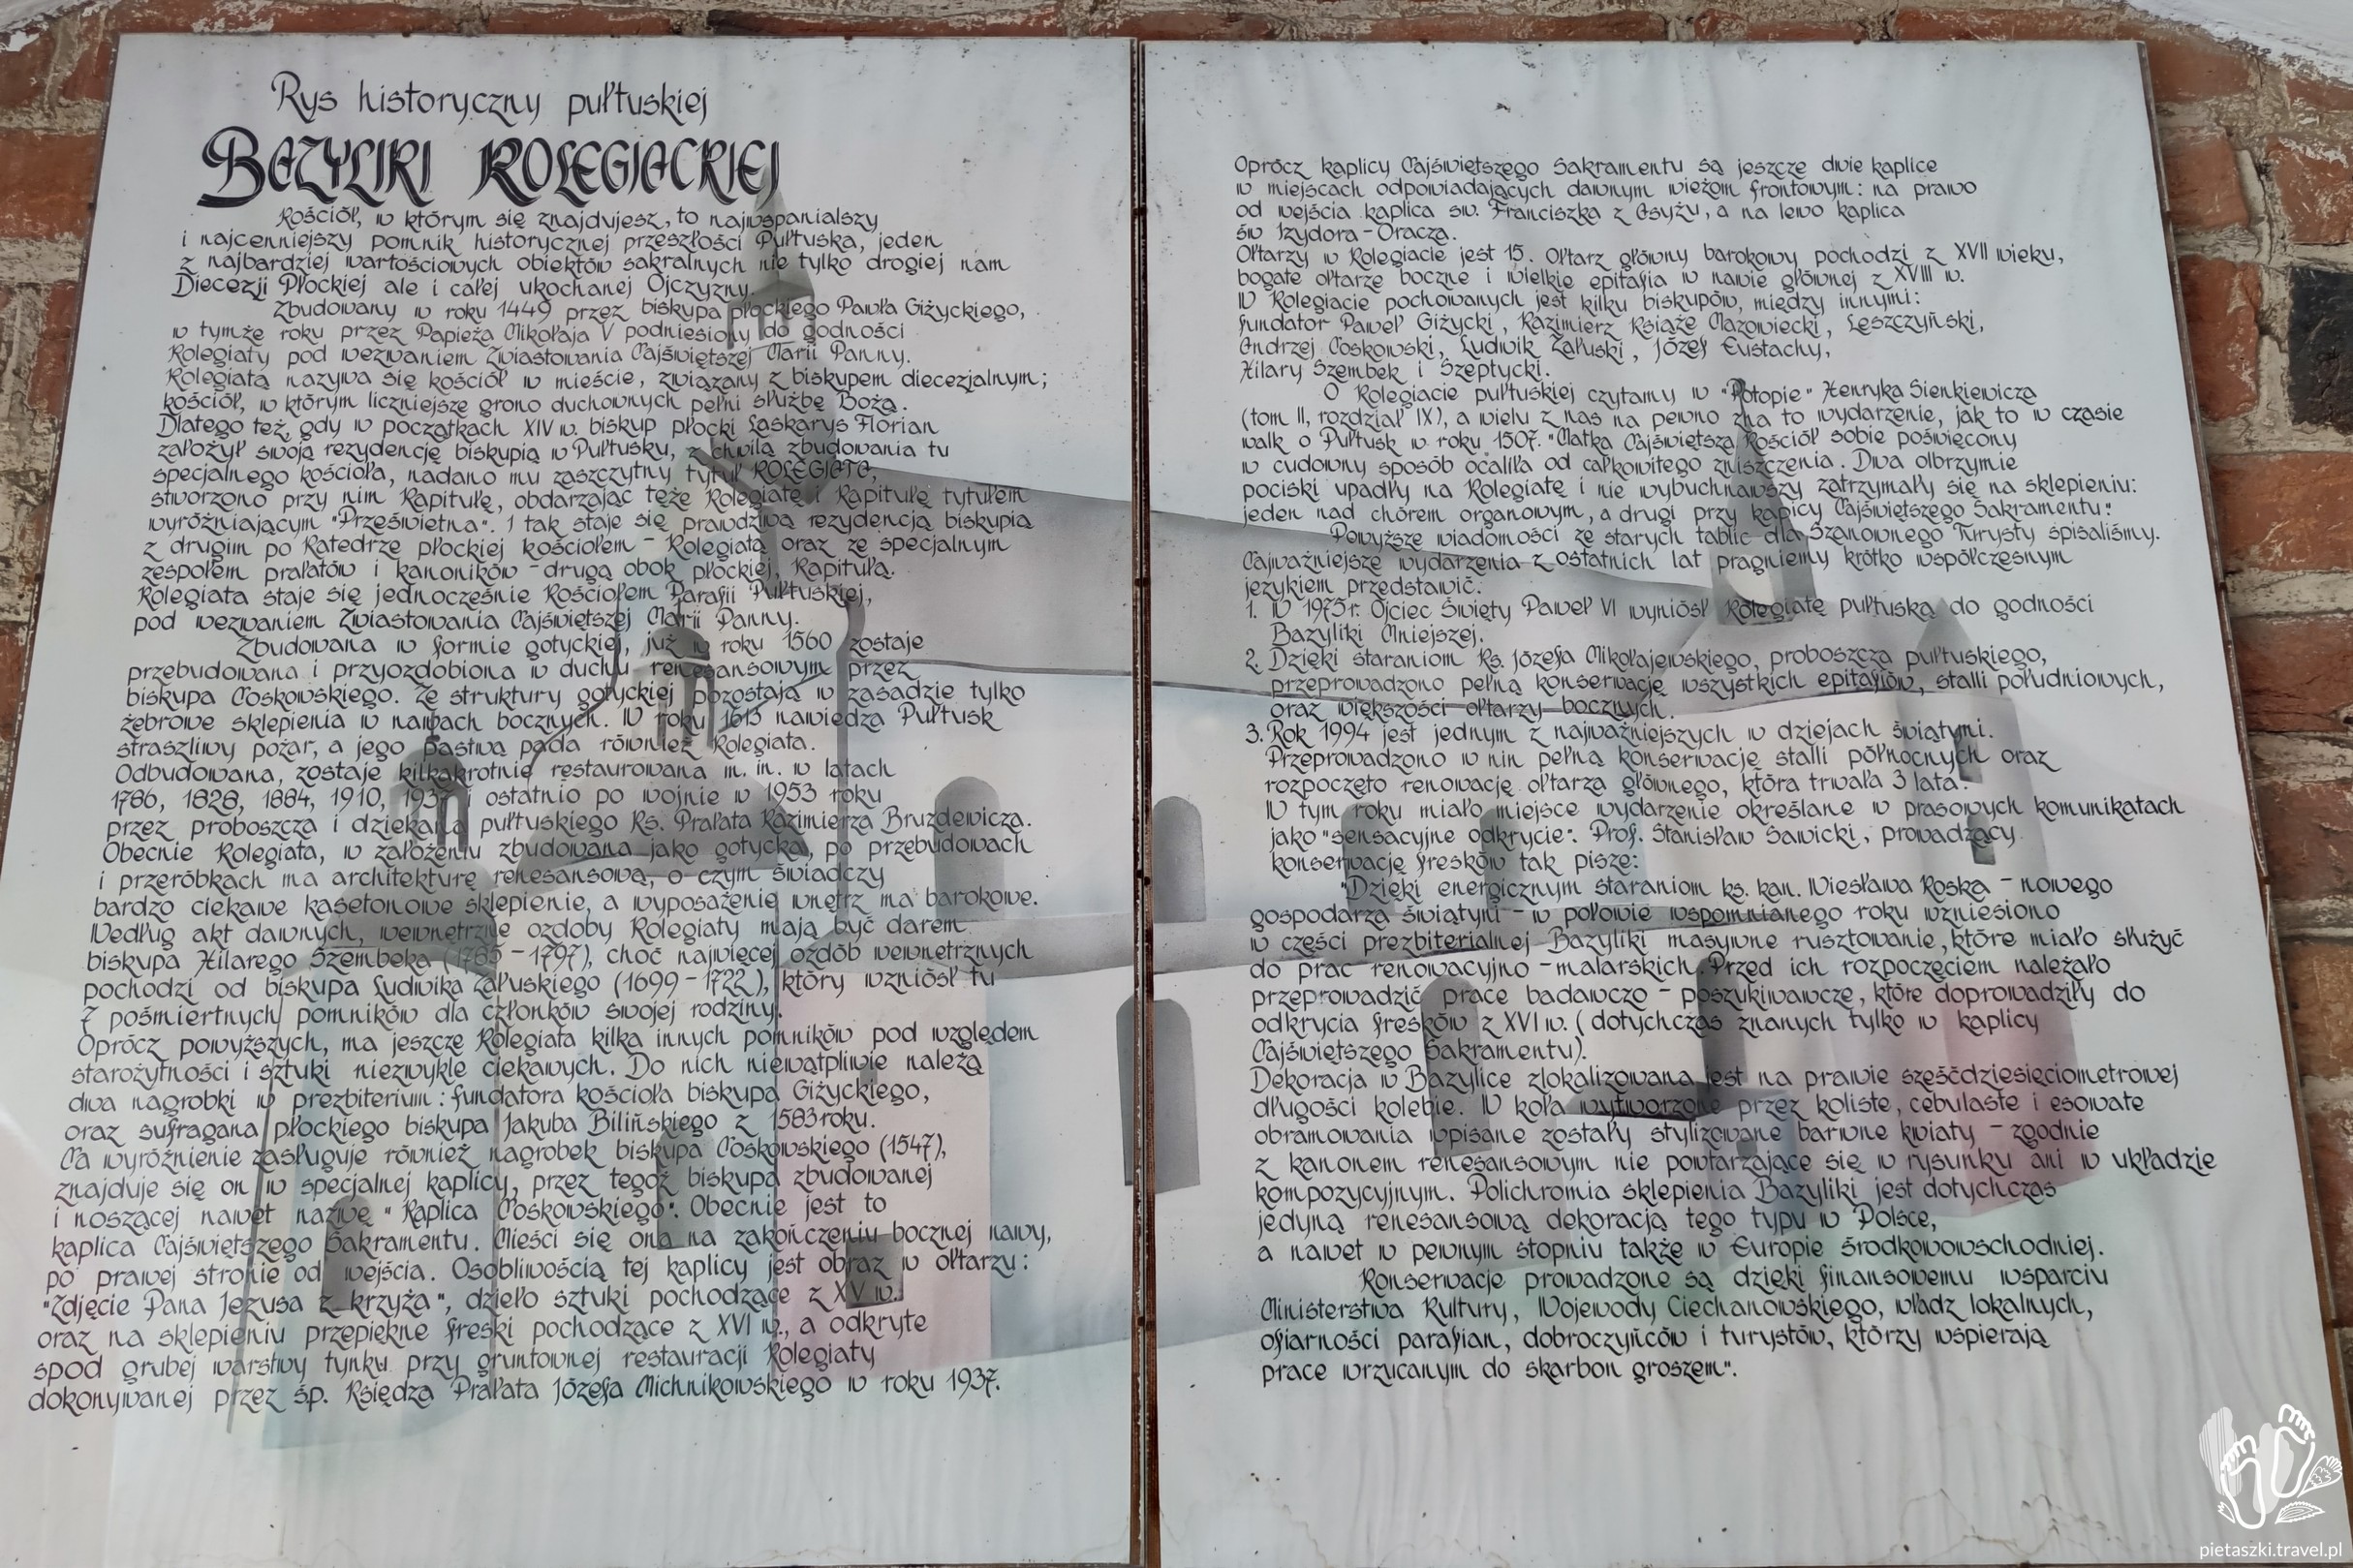 Rys historyczny pułtuskiej
BAZYLIKI KOLEGIACKIEJ
Kościół, w którym się znajdujesz, to najwspanialszy
i najcenniejszy pomnik historycznej przeszłości Pułtuska, jeden
z najbardziej wartościowych obiektów sakralnych nie tylko drogiej nam
Diecezji Płockiej ale i całej ukochanej Ojczyzny.
Zbudowany w roku 1449 przez biskupa płockiego Pawła Giżyckiego,
w tymże roku przez Papieża Mikołaja V podniesiony do godności
Kolegiaty pod wezwaniem Zwiastowania Najświętszej Marii Panny.
Kolegiatą nazywa się kościół w mieście, związany z biskupem diecezjalnym;
kościół, w którym liczniejsze grono duchownych pełni służbę Bożą.
Dlatego też, gdy w początkach XIV w. biskup płocki Laskarys Florian
założył swoją rezydencję biskupią w Pułtusku, z chwilą zbudowania tu
specjalnego kościoła, nadano mu zaszczytny tytuł KOLEGIATA,
stworzono przy nim Kapitułę, obdarzając teże Kolegiatę i Kapitułę tytułem
wyróżniającym "Prześwietna". I tak staje się prawdziwą rezydencją biskupią
z drugim po Katedrze płockiej kościołem - Kolegiatą oraz ze specjalnym
zespołem prałatów i kanoników - drugą obok płockiej, Kapitułą.
Kolegiata staje się jednocześnie Kościołem Parafii Pułtuskiej,
pod wezwaniem Zwiastowania Najświętszej Marii Panny.
Zbudowana w formie gotyckiej, już w roku 1560 zostaje
przebudowana i przyozdobiona w duchu renesansowym przez
biskupa Noskowskiego. Ze struktury gotyckiej pozostają w zasadzie tylko
żebrowe sklepienia w nawach bocznych. W roku 1613 nawiedza Pułtusk
straszliwy pożar, a jego pastwą pada również Kolegiata.
Odbudowana, zostaje kilkakrotnie restaurowana m. in. w latach
1786, 1828, 1884, 1910, 1937 i ostatnio po wojnie w 1953 roku
przez proboszcza i dziekana pułtuskiego Ks. Prałata Kazimierza Bruzdewicza.
Obecnie Kolegiata, w założeniu zbudowana jako gotycka, po przebudowach
i przeróbkach ma architekturę renesansową, o czym świadczy
bardzo ciekawe kasetonowe sklepienie, a wyposażenie wnętrz ma barokowe.
Według akt dawnych, wewnętrzne ozdoby Kolegiaty mają być darem
biskupa Hilarego Szembeka (1785 - 1797), choć najwięcej ozdób wewnętrznych
pochodzi od biskupa Ludwika Załuskiego (1699 - 1722), który wzniósł tu
7 pośmiertnych pomników dla członków swojej rodziny.
Oprócz powyższych, ma jeszcze Kolegiata kilka innych pomników pod względem
starożytności i sztuki niezwykle ciekawych. Do nich niewątpliwie należą
dwa nagrobki w prezbiterium: fundatora kościoła biskupa Giżyckiego,
oraz sufragana płockiego biskupa Jakuba Bilińskiego z 1583 roku.
Na wyróżnienie zasługuje również nagrobek biskupa Noskowskiego (1547),
znajduje się on w specjalnej kaplicy, przez tegoż biskupa zbudowanej
i noszącej nawet nazwę "Kaplica Noskowskiego". Obecnie jest to
kaplica Najświętszego Sakramentu. Mieści się ona na zakończeniu bocznej nawy,
po prawej stronie od wejścia. Osobliwością tej kaplicy jest obraz w ołtarzu:
"Zdjęcie Pana Jezusa z krzyża", dzieło sztuki pochodzące z XV w.
oraz na sklepieniu przepiękne freski pochodzące z XVI w., a odkryte
spod grubej warstwy tynku przy gruntownej restauracji Kolegiaty
dokonywanej przez śp. Księdza Prałata Józefa Michnikowskiego w roku 1937.
Oprócz kaplicy Najświętszego Sakramentu są jeszcze dwie kaplice
w miejscach odpowiadających dawnym wieżom frontowym: na prawo
od wejścia kaplica św. Franciszka z Asyżu, a na lewo kaplica
św Izydora - Oracza.
Ołtarzy w Kolegiacie jest 15. Ołtarz główny barokowy pochodzi z XVII wieku,
bogate ołtarze boczne i wielkie epitafia w nawie głównej z XVIII w.
W Kolegiacie pochowanych jest kilku biskupów, między innymi:
fundator Paweł Giżycki, Kazimierz Książe Mazowiecki, Leszczyński,
Andrzej Noskowski, Ludwik Załuski, Józef Eustachy,
Hilary Szembek i Szeptycki.
O Kolegiacie pułtuskiej czytamy w "Potopie" Henryka Sienkiewicza
(tom II, rozdział IX), a wielu z nas na pewno zna to wydarzenie, jak to w czasie
walk o Pułtusk w roku 1507. "Matka Najświętsza Kościół sobie poświęcony
w cudowny sposób ocaliła od całkowitego zniszczenia. Dwa olbrzymie
pociski upadły na Kolegiatę i nie wybuchnąwszy zatrzymały się na sklepieniu:
jeden nad chórem organowym, a drugi przy kapicy Najświętszego Sakramentu."
Powyższe wiadomości ze starych tablic dla Szanownego Turysty spisaliśmy.
Najważniejsze wydarzenia z ostatnich lat pragniemy krótko współczesnym
językiem przedstawić:
1. W 1975 r. Ojciec Święty Paweł VI wyniósł Kolegiatę pułtuską do godności
Bazyliki Mniejszej.
2. Dzięki staraniom Ks. Józefa Mikołajewskiego, proboszcza pułtuskiego,
przeprowadzono pełną konserwację wszystkich epitafiów, stalli południowych,
oraz większości ołtarzy bocznych.
3. Rok 1994 jest jednym z najważniejszych w dziejach świątyni.
Przeprowadzono w nin pełną konserwację stalli północnych oraz
rozpoczęto renowację ołtarza głównego, która trwała 3 lata.
W tym roku miało miejsce wydarzenie określane w prasowych komunikatach
jako "sensacyjne odkrycie". Prof. Stanisław Sawicki, prowadzący
konserwację fresków tak pisze:
"Dzięki energicznym staraniom ks. kan. Wiesława Koska - nowego
gospodarza świątyni - w połowie wspomnianego roku wzniesiono
w części prezbiterialnej Bazyliki masywne rusztowanie, które miało służyć
do prac renowacyjno - malarskich. Przed ich rozpoczęciem należało
przeprowadzić prace badawczo - poszukiwawcze, które doprowadziły do
odkrycia fresków z XVI w. (dotychczas znanych tylko w kaplicy
Najświętszego Sakramentu).
Dekoracja w Bazylice zlokalizowana jest na prawie sześćdziesięciometrowej
długości kolebie. W koła wytworzone przez koliste, cebulaste i esowate
obramowania wpisane zostały stylizowane barwne kwiaty - zgodnie
z kanonem renesansowym nie powtarzające się w rysunku ani w układzie
kompozycyjnym. Polichromia sklepienia Bazyliki jest dotychczas
jedyną renesansową dekoracją tego typu w Polsce,
a nawet w pewnym stopniu także w Europie środkowowschodniej.
Konserwacje prowadzone są dzięki finansowemu wsparciu
Ministerstwa Kultury, Wojewody Ciechanowskiego, władz lokalnych,
ofiarności parafian, dobroczyńców i turystów, którzy wspierają
prace wrzucanym do skarbon groszem".
pietaszki.travel.pl